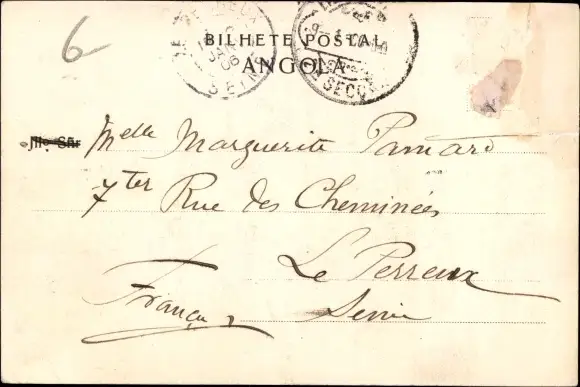 6
BILHETE POSTAL
ANGOLA
Ill.º Snr
Melle Marguerite Pamard
7ter Rue des Cheminées
Le Perreux
Seine
França